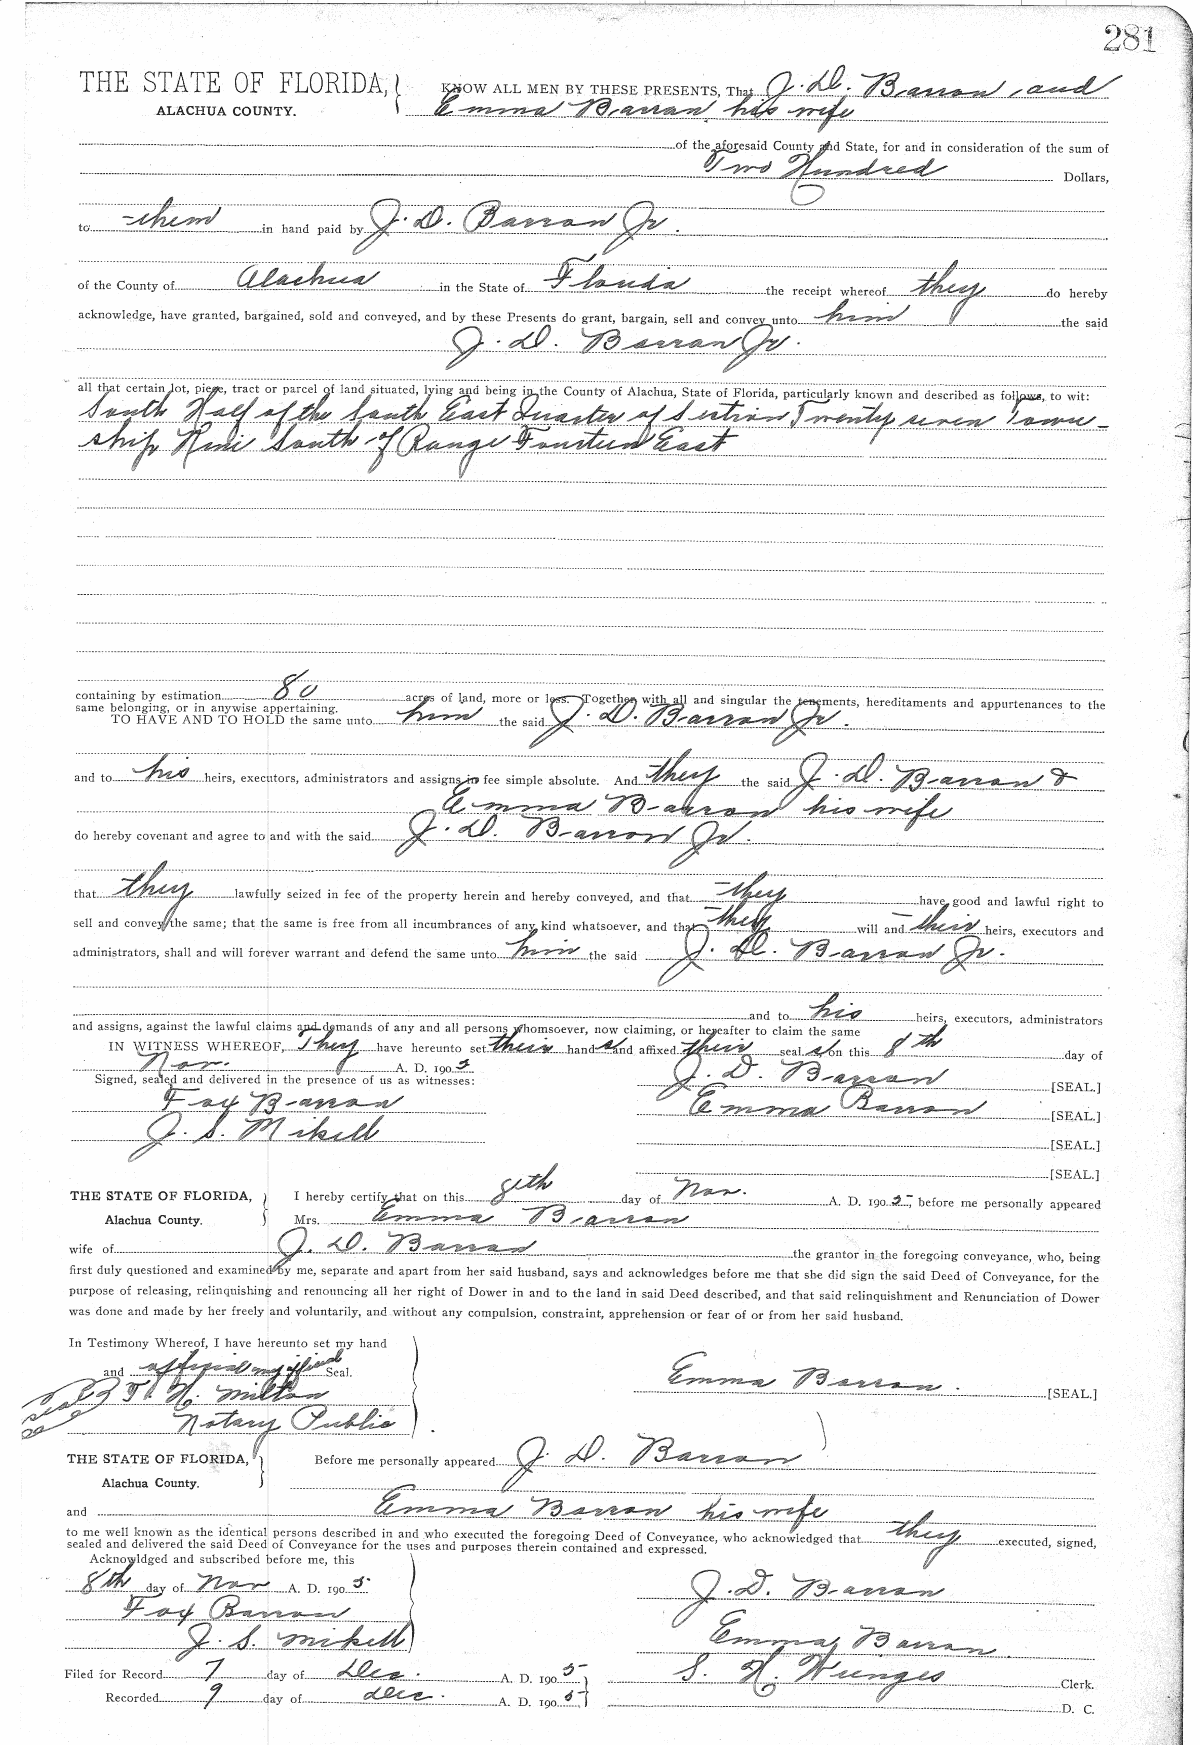 281
THE STATE OF FLORIDA, KNOW ALL MEN BY THESE PRESENTS, That J. D. Barron, and
ALACHUA COUNTY. Emma Barron his wife
of the aforesaid County and State, for and in consideration of the sum of
Two Hundred Dollars,
to them in hand paid by J. D. Barron Jr.
of the County of Alachua in the State of Florida the receipt whereof they do hereby
acknowledge, have granted, bargained, sold and conveyed, and by these Presents do grant, bargain, sell and convey unto him the said
J. D. Barron Jr.
all that certain lot, piece, tract or parcel of land situated, lying and being in the County of Alachua, State of Florida, particularly known and described as follows, to wit:
South Half of the South East Quarter of Section Twenty seven Town-
ship Nine South of Range Fourteen East
containing by estimation 80 acres of land, more or less. Together with all and singular the tenements, hereditaments and appurtenances to the
same belonging, or in anywise appertaining.
TO HAVE AND TO HOLD the same unto him the said J. D. Barron Jr.
and to his heirs, executors, administrators and assigns in fee simple absolute. And they the said J. D. Barron &
Emma Barron his wife
do hereby covenant and agree to and with the said J. D. Barron Jr.
that they lawfully seized in fee of the property herein and hereby conveyed, and that they have good and lawful right to
sell and convey the same; that the same is free from all incumbrances of any kind whatsoever, and that they will and their heirs, executors and
administrators, shall and will forever warrant and defend the same unto him the said J. D. Barron Jr.
and to his heirs, executors, administrators
and assigns, against the lawful claims and demands of any and all persons whomsoever, now claiming, or hereafter to claim the same
IN WITNESS WHEREOF, They have hereunto set their hands and affixed their seals on this 8th day of
Nov. A. D. 1905
Signed, sealed and delivered in the presence of us as witnesses: J. D. Barron [SEAL.]
Fox Barron Emma Barron [SEAL.]
J. S. Mikell [SEAL.]
[SEAL.]
THE STATE OF FLORIDA, I hereby certify that on this 8eth day of Nov. A. D. 1905, before me personally appeared
Alachua County. Mrs. Emma Barron
wife of J. D. Barron the grantor in the foregoing conveyance, who, being
first duly questioned and examined by me, separate and apart from her said husband, says and acknowledges before me that she did sign the said Deed of Conveyance, for the
purpose of releasing, relinquishing and renouncing all her right of Dower in and to the land in said Deed described, and that said relinquishment and Renunciation of Dower
was done and made by her freely and voluntarily, and without any compulsion, constraint, apprehension or fear of or from her said husband.
In Testimony Whereof, I have hereunto set my hand
and official my official Seal. Emma Barron. [SEAL.]
seal T. H. Milton
Notary Public
THE STATE OF FLORIDA, Before me personally appeared J. D. Barron
Alachua County.
and Emma Barron his wife
to me well known as the identical persons described in and who executed the foregoing Deed of Conveyance, who acknowledged that they executed, signed,
sealed and delivered the said Deed of Conveyance for the uses and purposes therein contained and expressed.
Acknowldged and subscribed before me, this
8th day of Nov A. D. 1905 J. D. Barron
Fox Barron
J. S. Mikell Emma Barron
Filed for Record 7 day of Dec. A. D. 1905 S. H. Wienges Clerk.
Recorded 9 day of Dec. A. D. 1905 D. C.